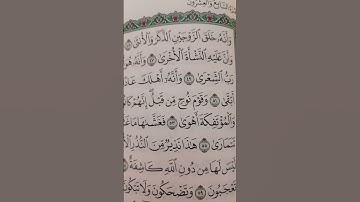 السابع والعشرون
وَأَنَّهُ خَلَقَ الزَّوْجَيْنِ الذَّكَرَ وَالْأُنثَىٰ
وَأَنَّ عَلَيْهِ النَّشْأَةَ الْأُخْرَىٰ ٤٧ وَأَنَّهُ هُوَ
رَبُّ الشِّعْرَىٰ ٤٩ وَأَنَّهُ أَهْلَكَ عَادًا
أَبْقَىٰ ٥١ وَقَوْمَ نُوحٍ مِّن قَبْلُ إِنَّهُمْ كَانُوا
وَالْمُؤْتَفِكَةَ أَهْوَىٰ ٥٣ فَغَشَّاهَا مَا غَ
تَتَمَارَىٰ ٥٥ هَٰذَا نَذِيرٌ مِّنَ النُّذُرِ الْ
لَيْسَ لَهَا مِن دُونِ اللَّهِ كَاشِفَةٌ
تَعْجَبُونَ ٥٩ وَتَضْحَكُونَ وَلَا تَبْكُونَ